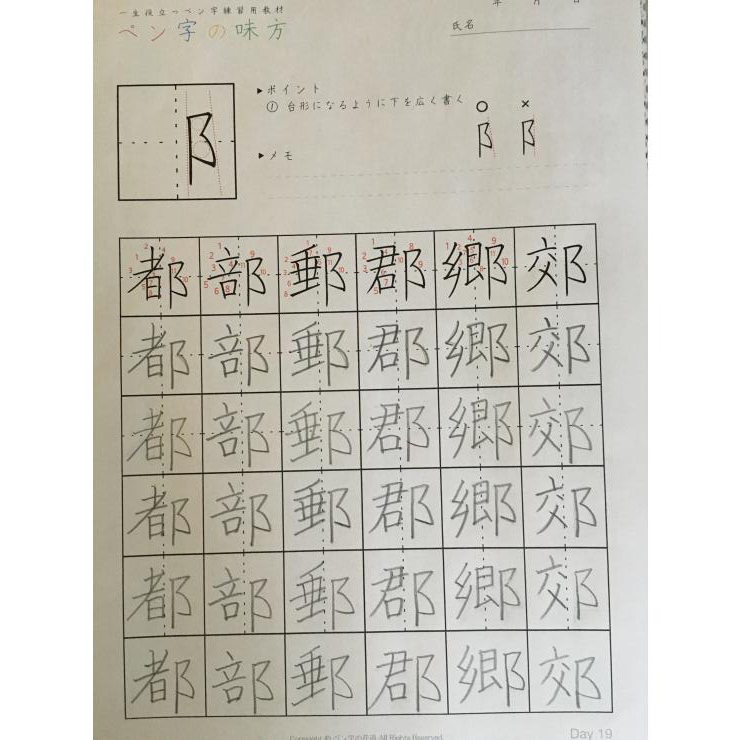 一生役立つペン字練習用教材
年 月 日
ペン字の味方
氏名
▶ポイント
① 台形になるように下を広く書く
○ ×
阝 阝 阝
▶メモ
都 部 郵 郡 郷 郊
都 部 郵 郡 郷 郊
都 部 郵 郡 郷 郊
都 部 郵 郡 郷 郊
都 部 郵 郡 郷 郊
都 部 郵 郡 郷 郊
All Rights Reserved.
Day 19